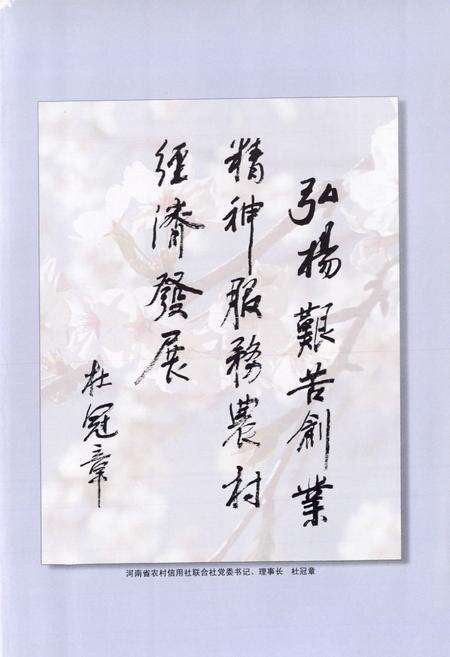 弘楊艱苦創業
精神服務農村
經濟發展
杜冠章
河南省农村信用社联合社党委书记、理事长 杜冠章